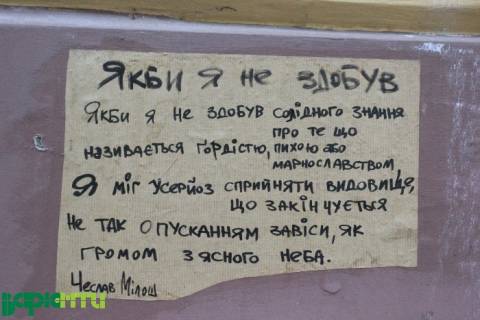 ЯКБИ Я НЕ ЗДОБУВ
ЯКБИ Я НЕ ЗДОБУВ СОЛІДНОГО ЗНАННЯ
ПРО ТЕ ЩО
НАЗИВАЄТЬСЯ ҐОРДІСТЮ, ПИХОЮ АБО
МАРНОСЛАВСТВОМ,
Я МІГ УСЕРЙОЗ СПРИЙНЯТИ ВИДОВИЩЕ,
ЩО ЗАКІНЧУЄТЬСЯ
НЕ ТАК ОПУСКАННЯМ ЗАВІСИ, ЯК
ГРОМОМ З ЯСНОГО НЕБА.
Чеслав Мілош